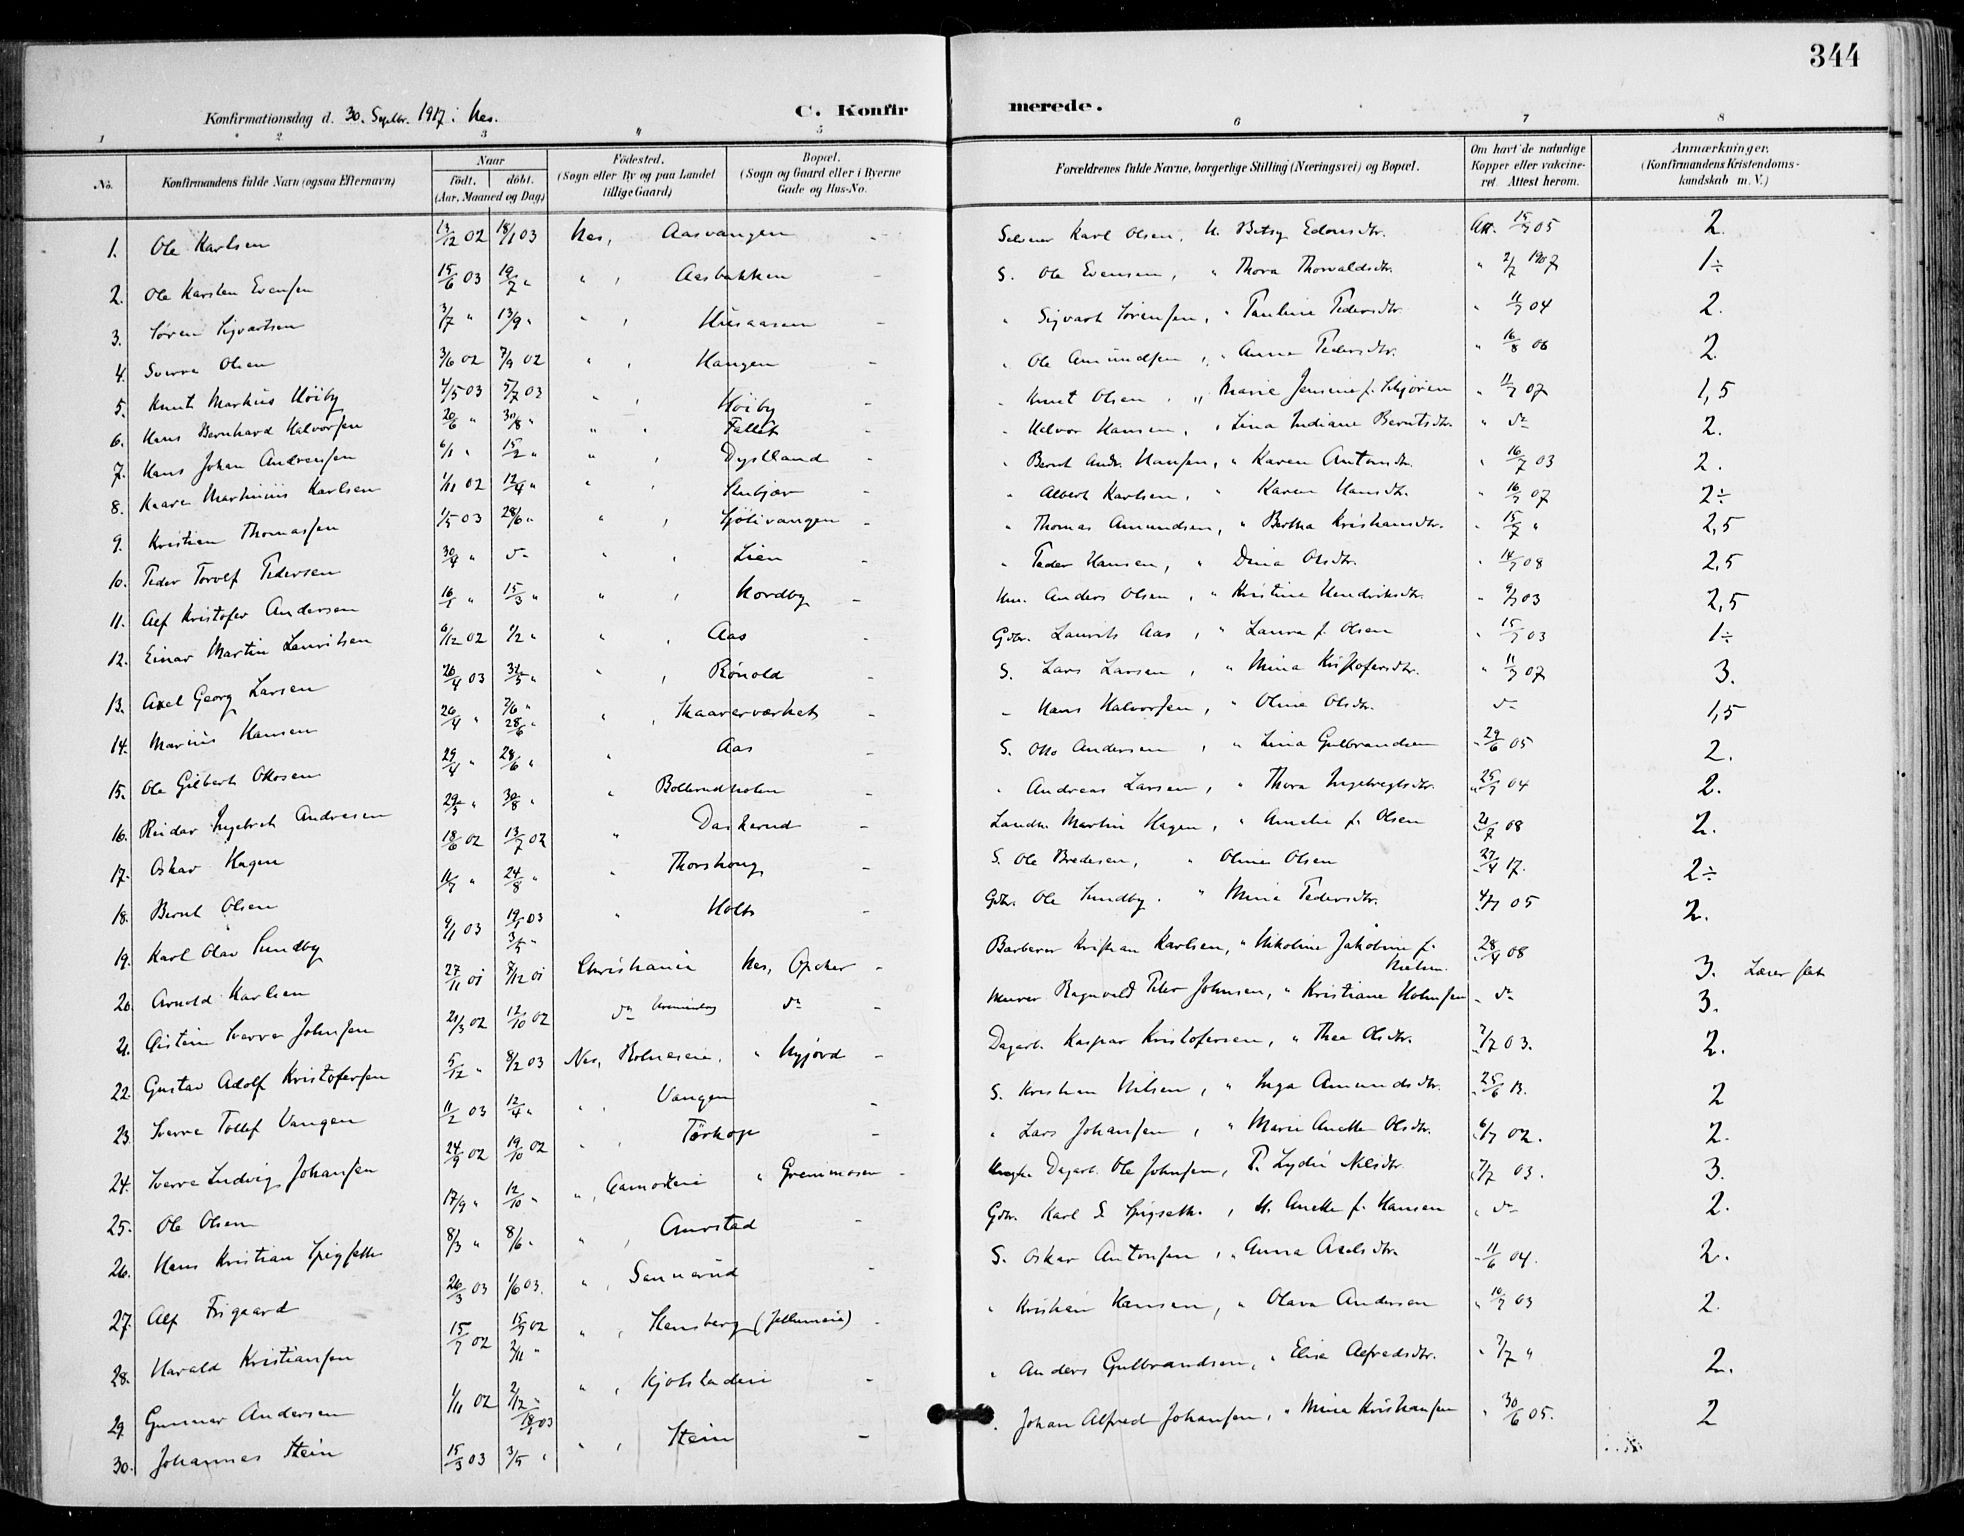 344
Konfirmationsdag d. 30. Septbr. 1917 i Nes.
C. Konfirmerede.
1 2 3 4 5 6 7 8
No. Konfirmandens fulde Navn (ogsaa Efternavn) Naar født. døbt. (Aar, Maaned og Dag) Födested. (Sogn eller By og paa Landet tillige Gaard) Bopæl. (Sogn og Gaard eller i Byerne Gade og Hus-No. Forældrenes fulde Navne, borgerlige Stilling (Næringsvei) og Bopæl. Om havt de naturlige Kopper eller vakcineret. Attest herom. Anmærkninger. (Konfirmandens Kristendomskundskab m. V.)
1. Ole Karlsen 13/12 02 18/1 03 Nes, Aasvangen - Selveier Karl Olsen, H. Betsy Edvinsdtr. Att. 15/7 05 2.
2. Ole Karsten Evensen 15/6 03 19/7 " " , Aasbakken - S. Ole Evensen, " Thora Thorvaldsdtr. " 2/7 1907 1÷
3. Søren Sigvartsen 3/7 " 13/9 " " , Husaasen - " Sigvart Sørensen, " Pauline Pedersdtr. " 11/7 04 2.
4. Sverre Olsen 3/6 02 7/9 02 " , Haugen - " Ole Amundsen, " Anna Pedersdtr. " 16/8 06 2.
5. Knut Markus Høiby 4/5 03 5/7 03 " , Høiby - " Knut Olsen, " Marie Jensine f. Skjøren " 11/7 07 1,5
6. Hans Bernhard Halvorsen 20/6 " 30/8 " " " Fallet - " Halvor Hansen, " Lina Indiane Berntsdtr. " do 2.
7. Hans Johan Andreasen 6/1 " 15/2 " " , Dystland - " Bernt Andr. Hansen, " Karen Antonsdtr. " 16/7 03 2.
8. Kaare Martinius Karlsen 1/11 02 12/4 " " , - " Albert Karlsen, " Karen Hansdtr. " 16/7 07 2÷
9. Kristian Thomassen 1/5 03 28/6 " " , - " Thomas Amundsen, " Bertha Kristiansdtr. " 15/7 " 2,5
10. Peder Torolf Pedersen 30/4 " do " , Lien - " Peder Hansen, " Dina Olsdtr. " 14/7 08 2,5
11. Alf Kristofer Andersen 16/1 " 15/3 " " , Nordby - Hm. Anders Olsen, " Kristine Hendriksdtr. " 9/7 03 2,5
12. Einar Martin Lauritsen 6/12 02 1/2 " " , Aas - Gdbr. Laurits Aas, " Laura f. Olsen " 15/7 03 1÷
13. Axel Georg Larsen 26/4 03 31/5 " " , Rönold - S. Lars Larsen, " Mina Kristofersdtr. " 11/7 07 3.
14. Marius Hansen 26/4 " 7/6 " 28/6 " " , Skaarerværket - " Hans Halvorsen, " Oline Olsdtr. do 1,5
15. Ole Gilbert Ottosen 29/4 " 28/6 " " Aas - S. Otto Andersen, " Lina Gulbrandsen " 29/6 05 2.
16. Reidar Ingebret Andresen 29/3 " 30/8 " " Bollerudholen - " Andreas Larsen, " Thora Ingebregtsdtr. " 25/7 04 2.
17. Oskar Hagen 18/6 02 13/7 02 " Daskerud - Landm. Martin Hagen, " Amelie f. Olsen " 21/7 08 2.
18. Bernt Olsen 11/7 " 24/8 " " Thorshaug - S. Ole Bredesen, " Oline Olsen " 27/4 17. 2÷
19. Karl Olav Sundby 9/1 03 19/1 03 3/5 " " Holts - Gdbr. Ole Sundby. " Mina Pedersdtr. " 4/7 05 2.
20. Arnold Karlsen 27/11 01 7/12 01 Christiania Nes, Opaker - Barberer Kristian Karlsen, " Nikoline Jakobine f. Nielsen. " 28/4 08 3.
21. Øistein Sverre Johnsen 21/3 02 12/10 02 do do - Murer Ragnvald Peter Johnsen, " Kristiane Holmsen " do 3.
22. Gustav Adolf Kristofersen 5/12 " 8/2 03 Nes, " Nyjord - Dagarb. Kaspar Kristofersen, " Thea Olsdtr. " 7/7 03. 2.
23. Sverre Tollef Vangen 11/2 03 12/4 " " , Vangen - S. Kristian Nilsen, " Inga Amundsdtr. " 25/6 13. 2
24. Sverre Ludvig Johansen 24/9 02 19/10 02 " , Törkop - " Lars Johansen, " Marie Anette Olsdtr. " 6/7 02. 2.
25. Ole Olsen 17/9 " 12/10 " " , Aamodteie " Grenimosen - Ungk. Dagarb. Ole Johnsen, P. Lydie Nilsdtr. " 7/7 03. 3.
26. Hans Kristian 8/3 " 8/6 " " , Aurstad - Gdbr. Karl S. , H. Anette f. Hansen " do 2.
27. Alf Frigaard 26/3 03 1/6 03. " , Sannerud - S. Oskar Antonsen, " Anna Axelsdtr. " 11/6 04. 2.
28. Harald Kristiansen 15/7 02 15/9 02 2/11 " " , Stensberg (Jellumeie) - " Kristian Hansen, " Olava Andersen " 10/7 03 2.
29. Gunnar Andersen 1/11 02 2/12 " 18/1 03 " , Kjolstadeie - " Anders Gulbrandsen, " Elise Alfredsdtr. " 7/7 " 2.
30. Johannes Stein 15/3 03 3/5 " " , Stein - " Johan Alfred Johansen, " Mina Kristiansen " 30/6 05. 2